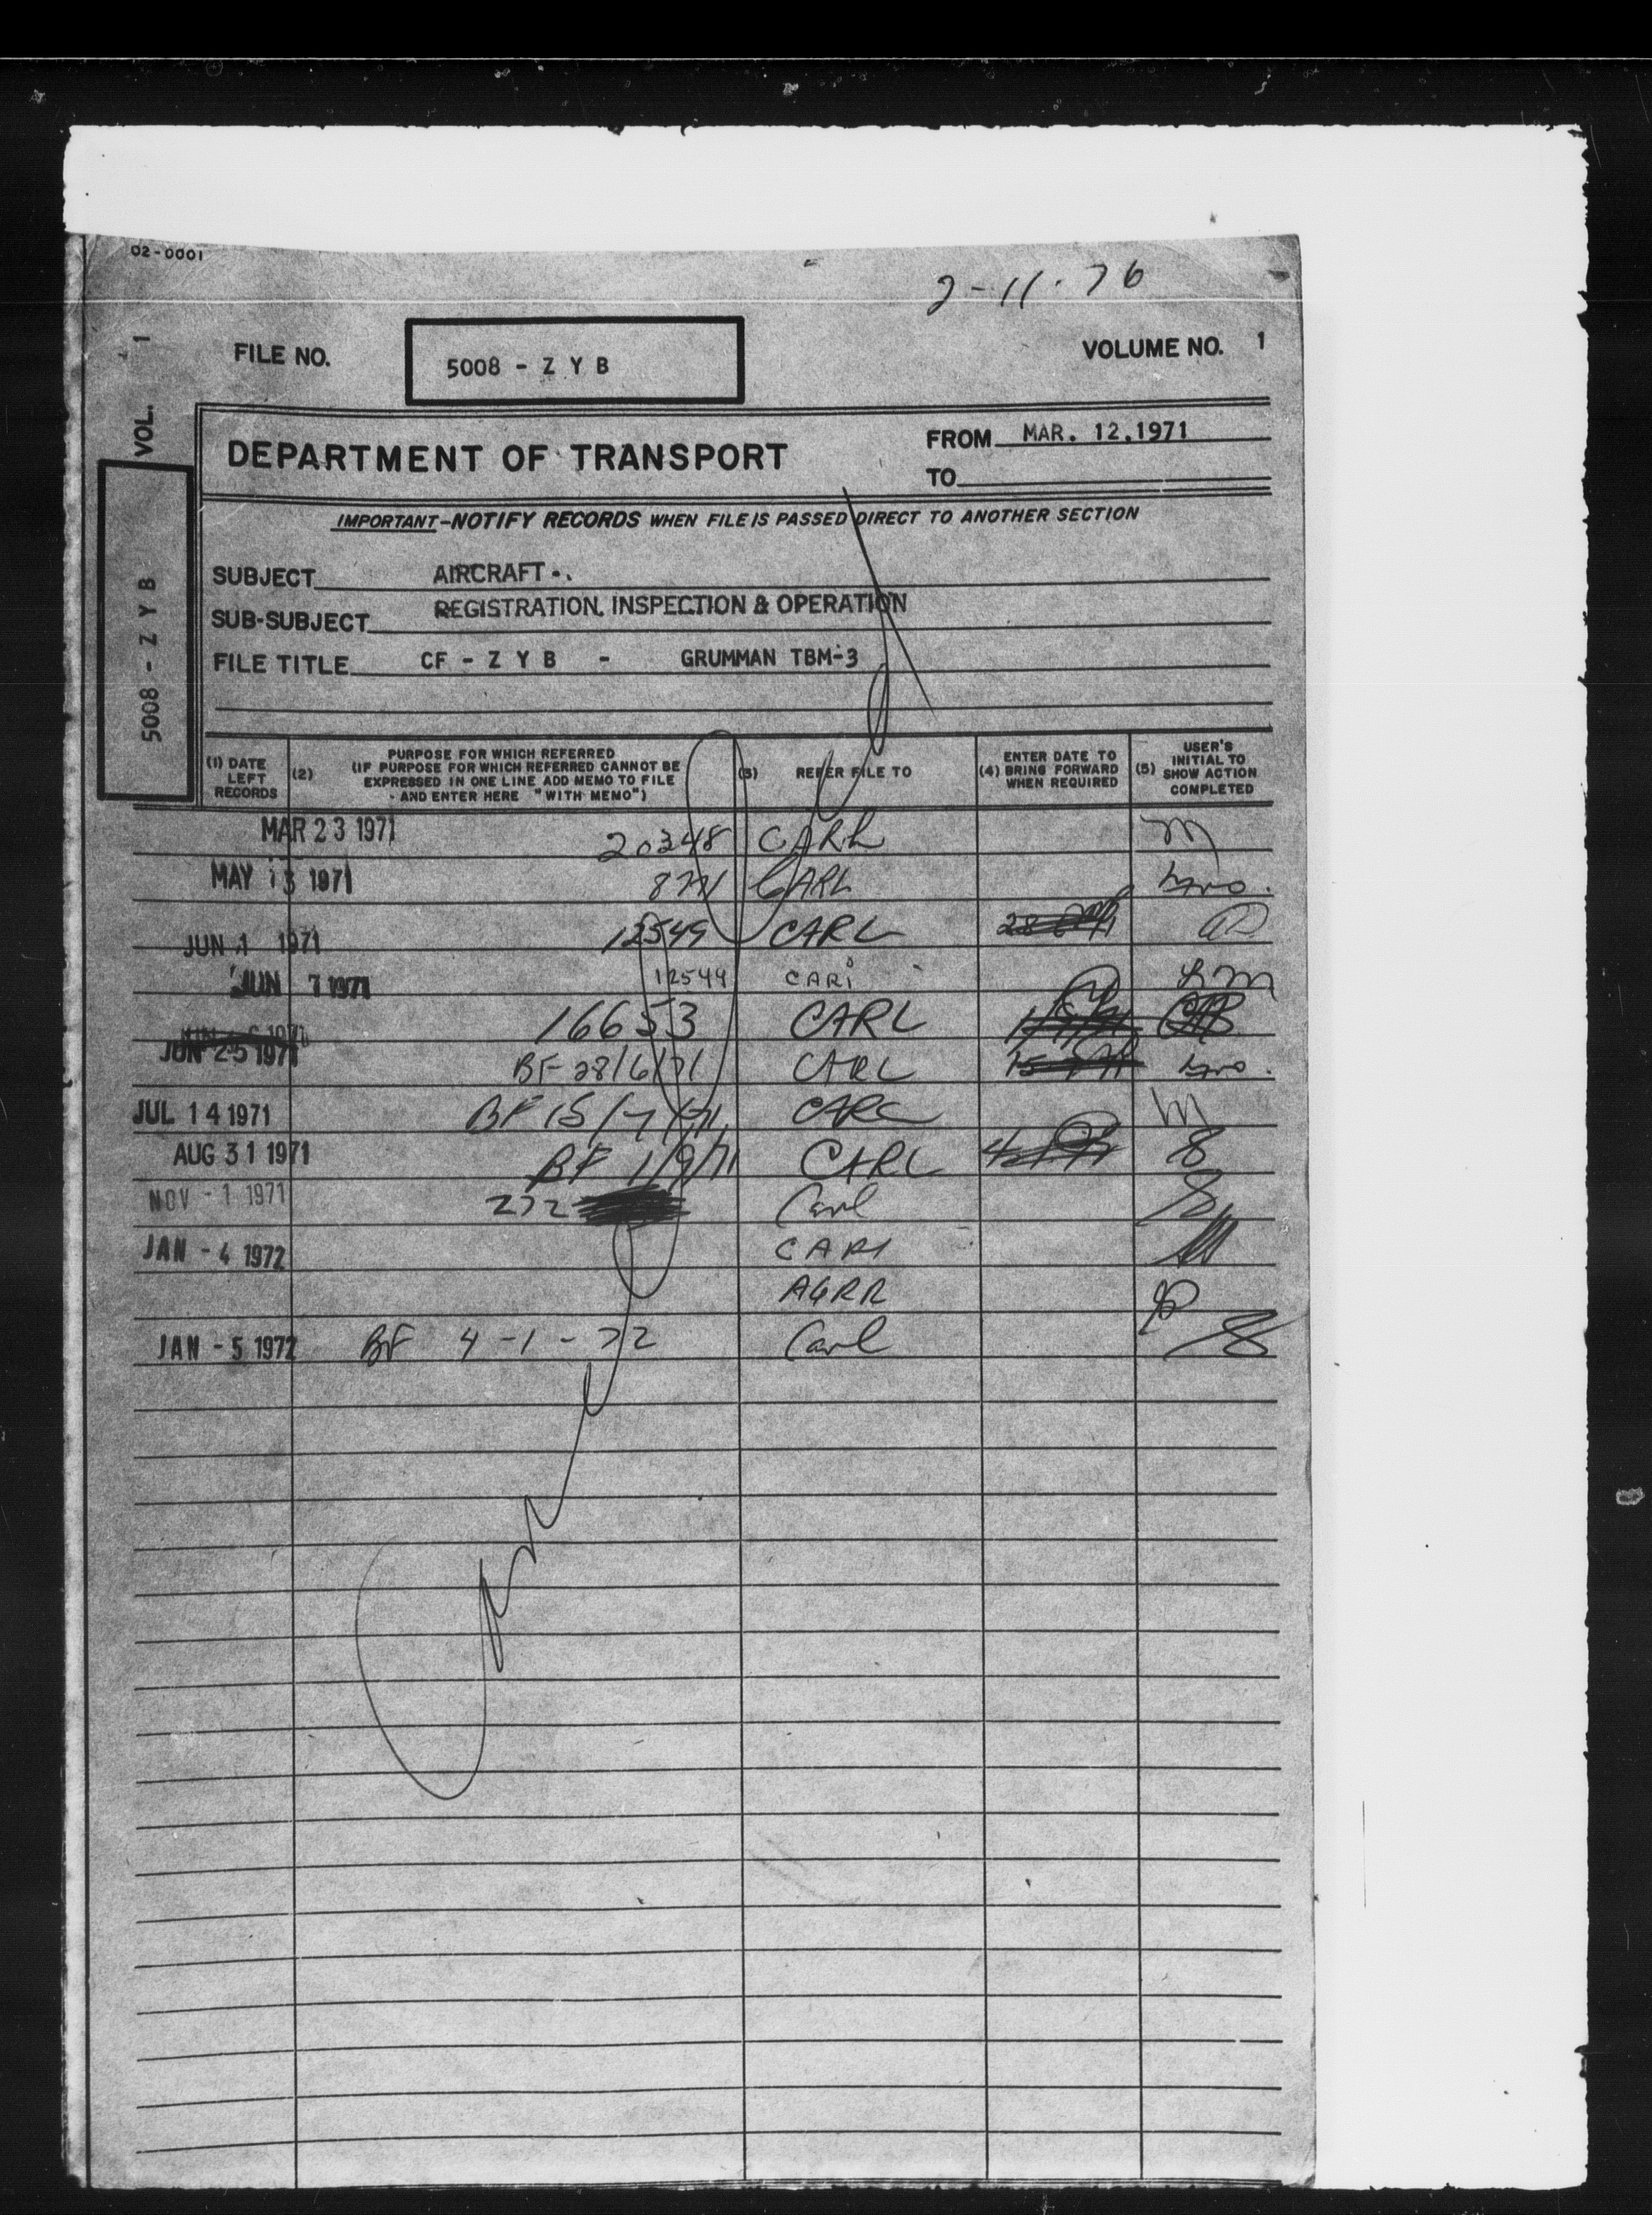 02-0001
2-11-76
FILE NO. 5008 - Z Y B VOLUME NO. 1
VOL. 1
5008 - Z Y B
DEPARTMENT OF TRANSPORT
FROM MAR. 12.1971
TO
IMPORTANT-NOTIFY RECORDS WHEN FILE IS PASSED DIRECT TO ANOTHER SECTION
SUBJECT AIRCRAFT -.
SUB-SUBJECT REGISTRATION, INSPECTION & OPERATION
FILE TITLE CF - Z Y B - GRUMMAN TBM-3
(1) DATE LEFT RECORDS
(2) PURPOSE FOR WHICH REFERRED
(IF PURPOSE FOR WHICH REFERRED CANNOT BE
EXPRESSED IN ONE LINE ADD MEMO TO FILE
- AND ENTER HERE "WITH MEMO")
(3) REFER FILE TO
(4) ENTER DATE TO BRING FORWARD WHEN REQUIRED
(5) USER'S INITIAL TO SHOW ACTION COMPLETED
MAR 23 1971 20348 CARL m
MAY 13 1971 CARL
JUN 1 1971 12549 CARL
JUN 7 1971 12549 CARL hm
16653 CARL
JUN 25 1971 BF 28/6/71 CARL
JUL 14 1971 BF 15/7/71 CARL m
AUG 31 1971 BF 1/9/71 CARL
NOV - 1 1971 272 Carl
JAN - 4 1972 CARL
AGRR
JAN - 5 1972 BF 4-1-72 Carl